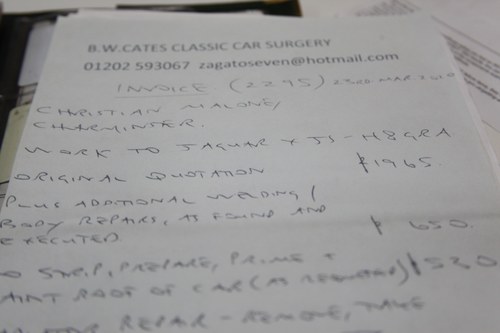 B.W.CATES CLASSIC CAR SURGERY
01202 593067 zagatoseven@hotmail.com
INVOICE (2295) 23RD MAR 2010
CHRISTIAN MALONE,
CHARMINSTER.
WORK TO JAGUAR XJS - H8GRA
ORIGINAL QUOTATION £1965.
PLUS ADDITIONAL WELDING /
BODY REPAIRS, AS FOUND AND
EXECUTED £ 650.
TO STRIP, PREPARE, PRIME +
PAINT ROOF OF CAR (AS REQUIRED) £520
REPAIR - REMOVE, TAKE